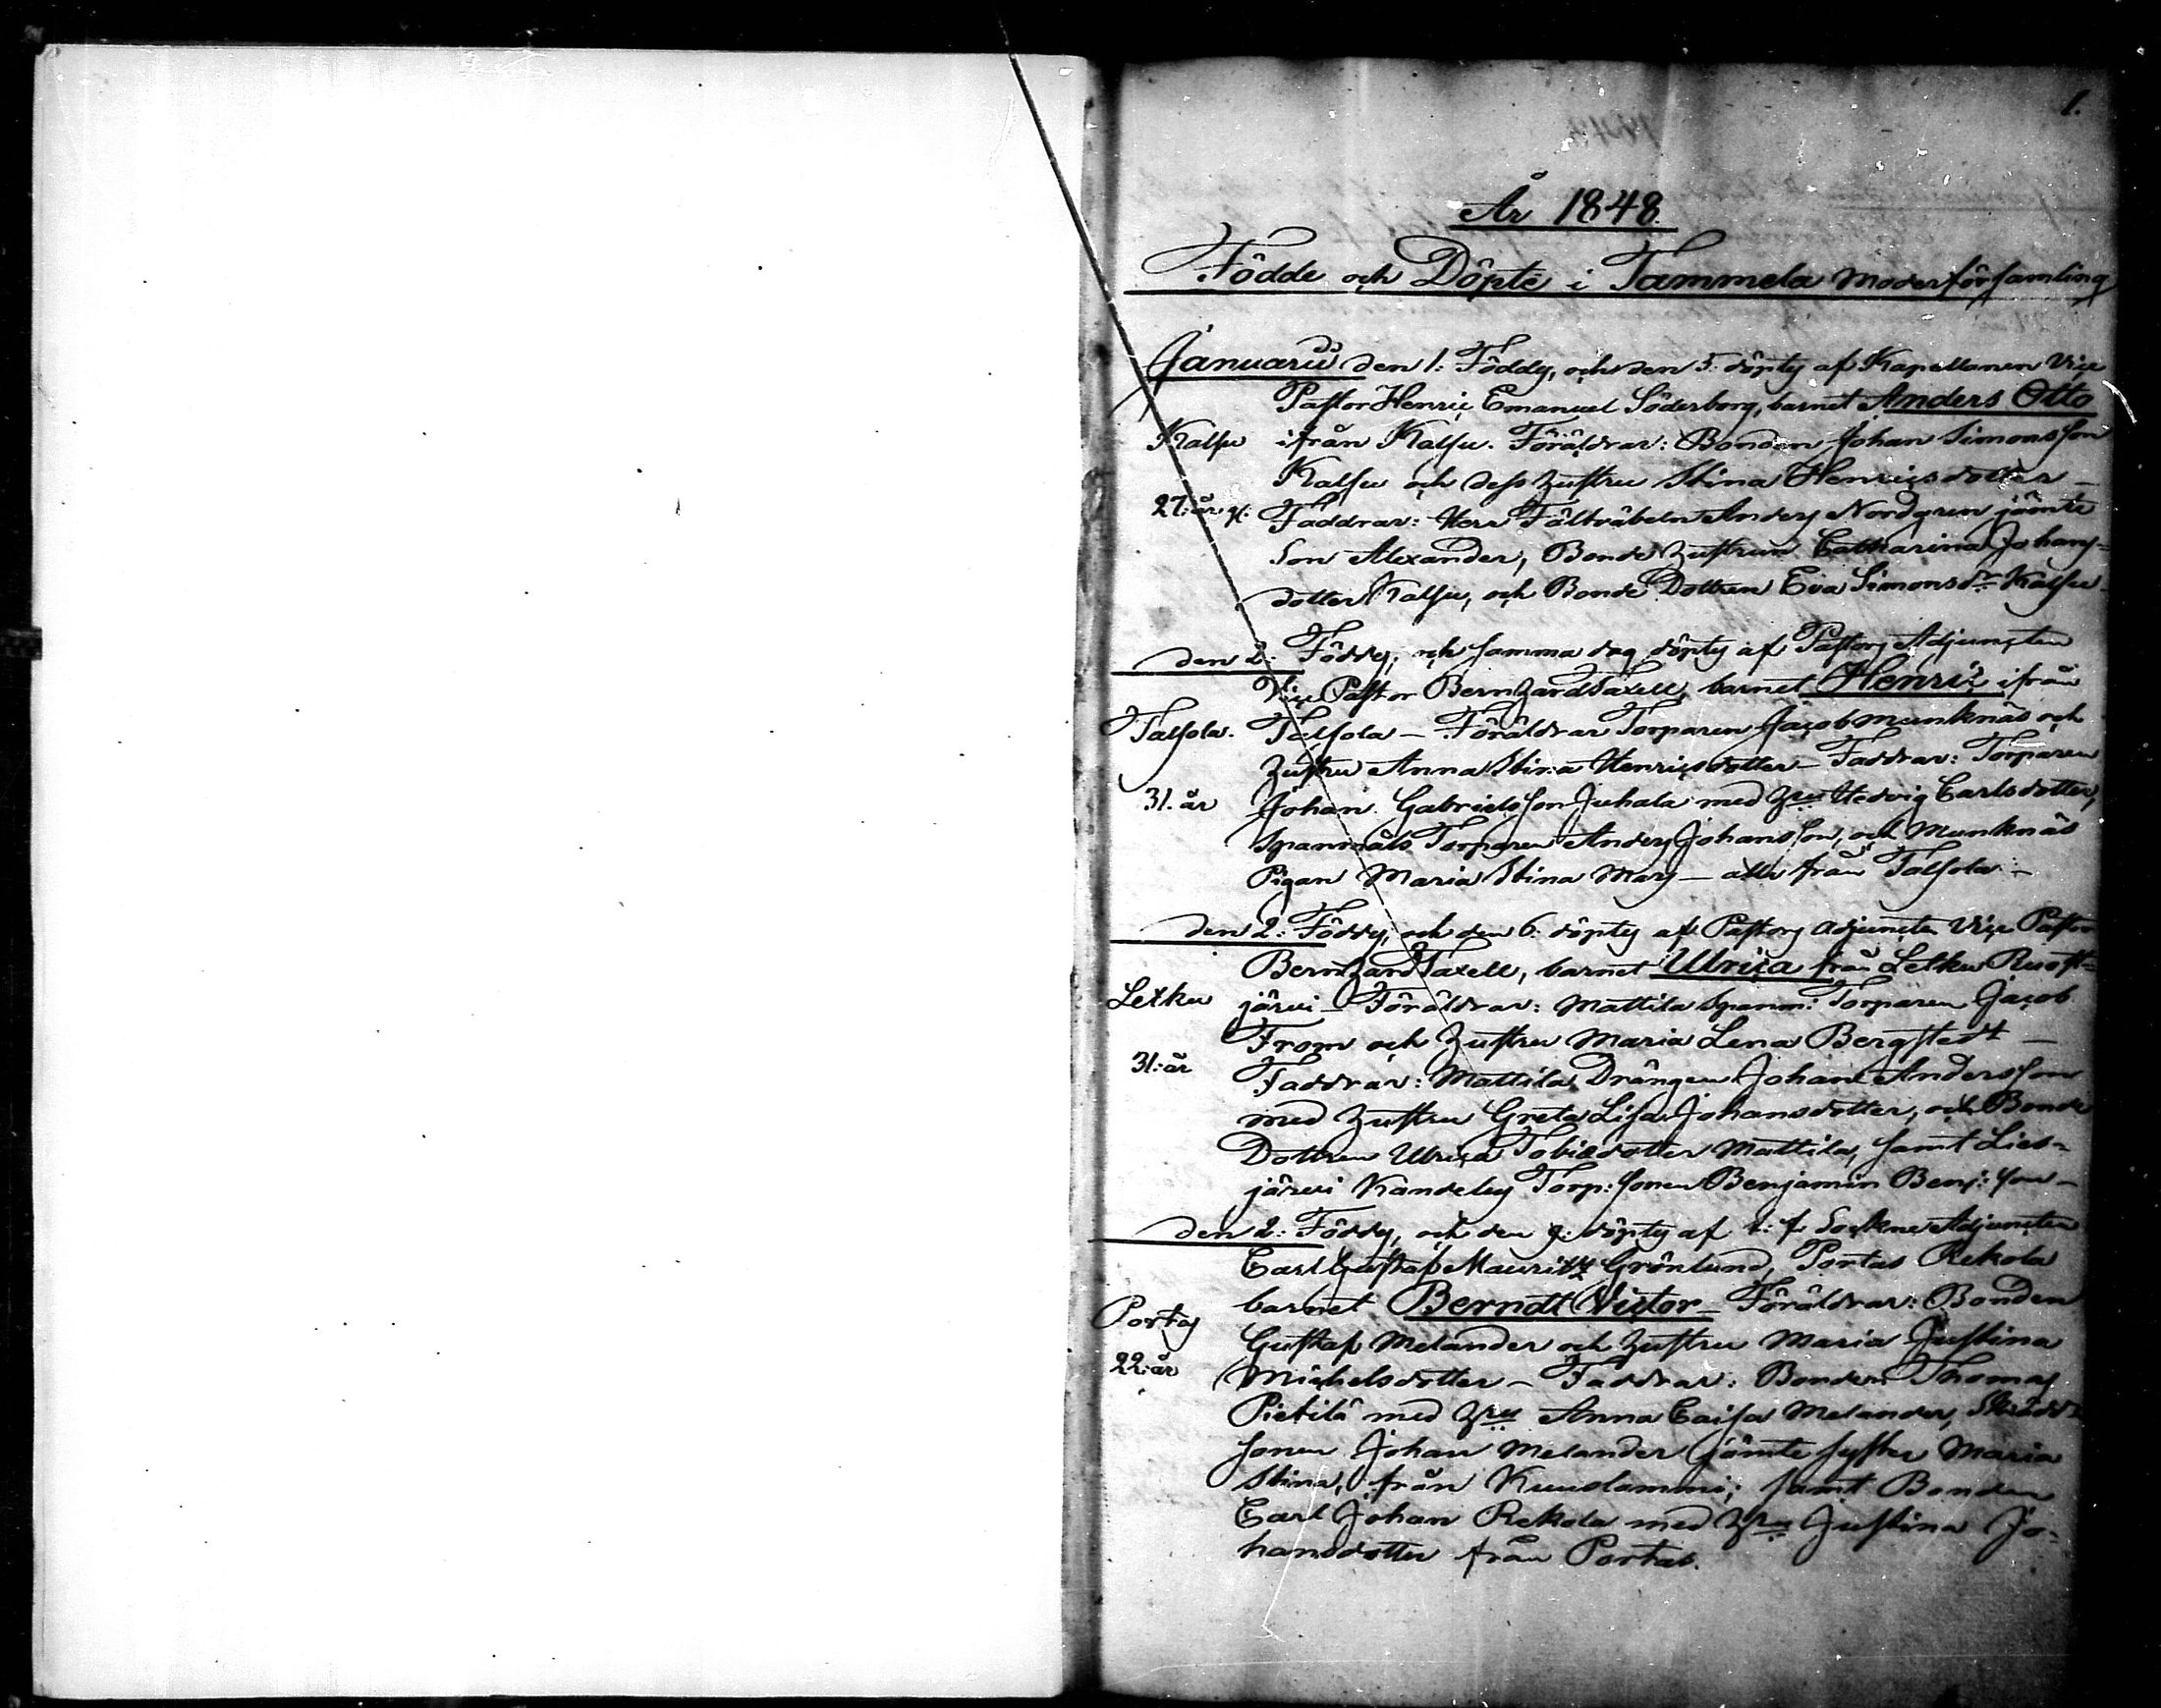 1.
År 1848.
Födde och Döpte i Tammela Moderförsamling
Januarii den 1: Föddes, och den 5. döptes af Kapellanen Vice
Pastor Henric Emanuel Söderborg, barnet Anders Otto
Kalsu ifrån Kalsu. Föräldrar: Bonden Johan Simonsson
Kalsu och dess hustru Stina Henricsdotter –
27: år g: Faddrar: Herr Fältväbeln Anders Nordgren jämte
Son Alexander, Bonde hustrun Catharina Johans=
dotter Kalsu, och Bonde Dottren Eva Simonsdr Kalsu.
den 2: Föddes, och samma dag döptes af Pastors Adjuncten
Vice Pastor Bernhard Taxell, barnet Henric ifrån
Talsola. Talsola – Föräldrar Torparen Jacob Munknäs och
hustru Anna Stina Henricsdotter – Faddrar: Torparen
31. år Johan Gabrielsson Juhala med hru Hedvig Carlsdotter,
Spanmåls Torparen Anders Johansson, och Munknäs
Pigan Maria Stina Mars – alla från Talsola –
den 2: Föddes, och den 6. döptes af Pastors adjuncten Vice Pastor
Bernhard Taxell, barnet Ulrica från Letku Ruost=
Letku järvi – Föräldrar: Mattila Spanm: Torparen Jacob
From och hustru Maria Lena Bergstedt –
31: år Faddrar: Mattila Drängen Johan Andersson
med hustru Greta Lisa Johansdotter, och Bonde
Dottren Ulrica Tobiædotter Mattila, samt Lies=
järvi Torp: sonen Benjamin Benj: son –
den 2: Föddes, och den 9: döptes af t: f. Sockne Adjuncten
Carl Gustaf Mauritz Grönlund, Portas Rekola
Portas barnet Berndt Victor – Föräldrar: Bonden
Gustaf Melander och hustru Maria Justina
22: år Michelsdotter – Faddrar: Bonden Thomas
Pietilä med hru Anna Caisa Melander, Skrädd:
sonen Johan Melander jämte syster Maria
Stina, från Kuuslammi; samt Bonden
Carl Johan Rekola med hru Justina Jo=
hansdotter från Portas.